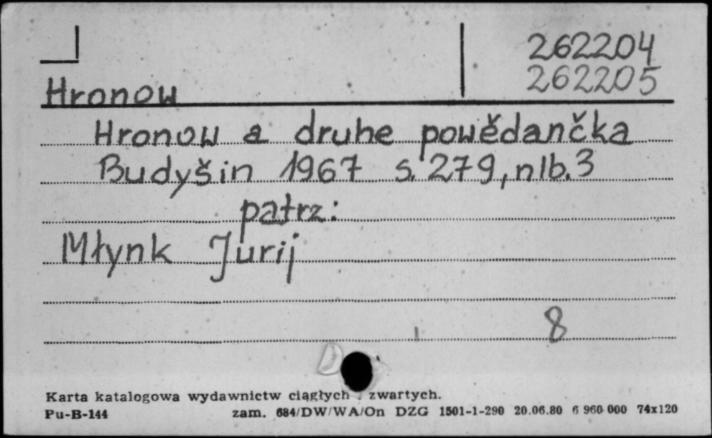 262204
262205
Hronow
Hronow a druhe powědančka
Budyšin 1967 s. 279, nlb. 3
patrz:
Młynk Jurij
8
D
Karta katalogowa wydawnictw ciągłych i zwartych.
Pu-B-144 zam. 684/DW/WA/On DZG 1501-1-290 20.06.80 6 960 000 74x120